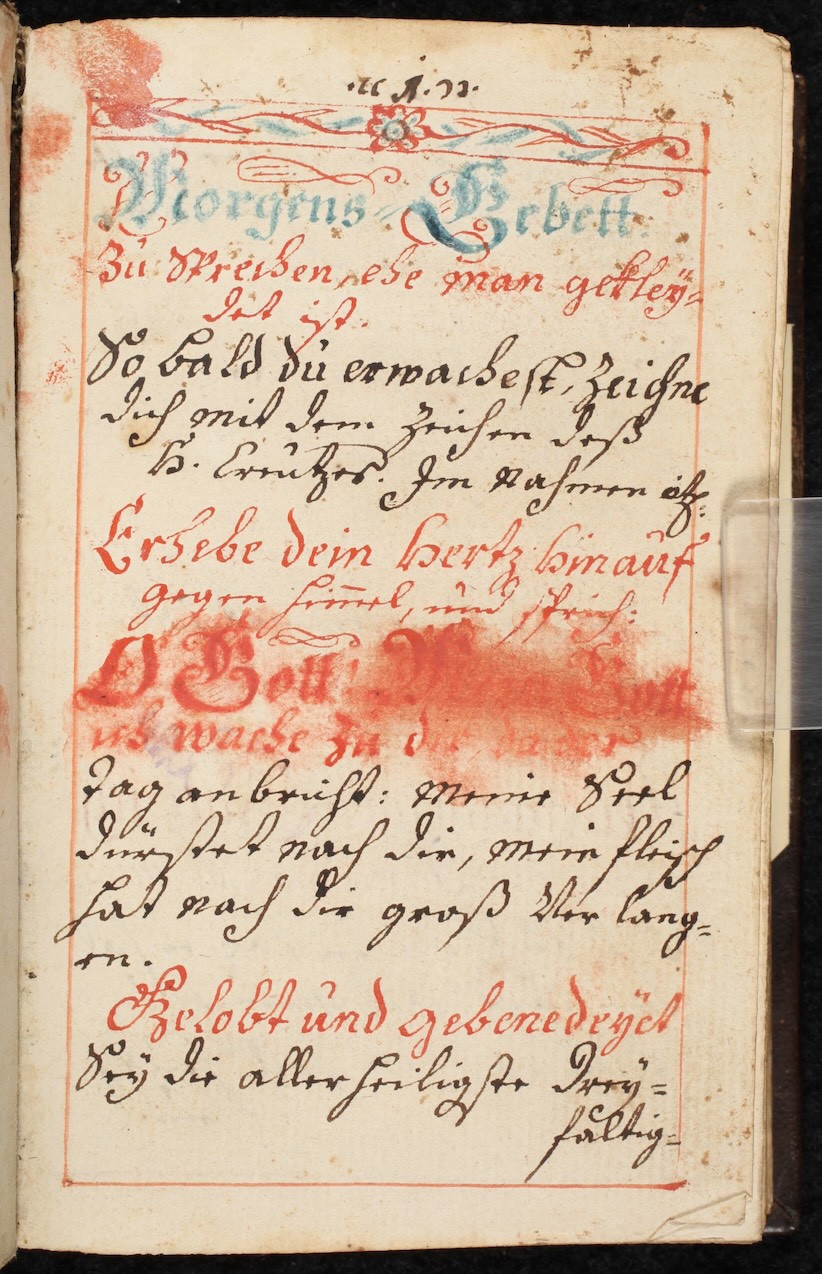 1.
Morgens-Gebett.
Zu Sprechen, ehe man gekley-
det ist.
So bald du erwachest, Zeichne
dich mit dem Zeichen deß
H. Creutzes. Im Nahmen etc:
Erhebe dein Hertz hinauf
gegen him̅el, und sprich:
O Gott! Mein Gott
ich wache zu dir, da der
tag anbricht: meine Seel
dürstet nach dir, mein fleisch
hat nach dir groß Verlang-
en.
Gelobt und gebenedeyet
Sey die allerheiligste Drey-
faltig-